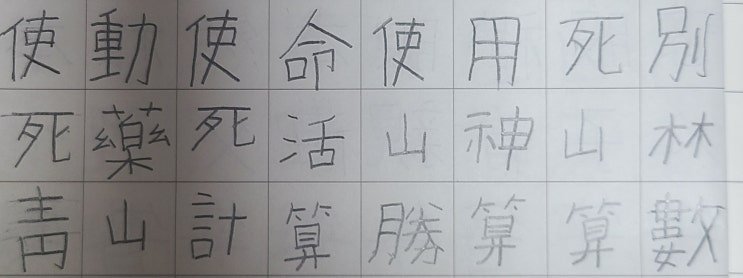 使動使命使用死別
死藥死活山神山林
靑山計算勝算算數